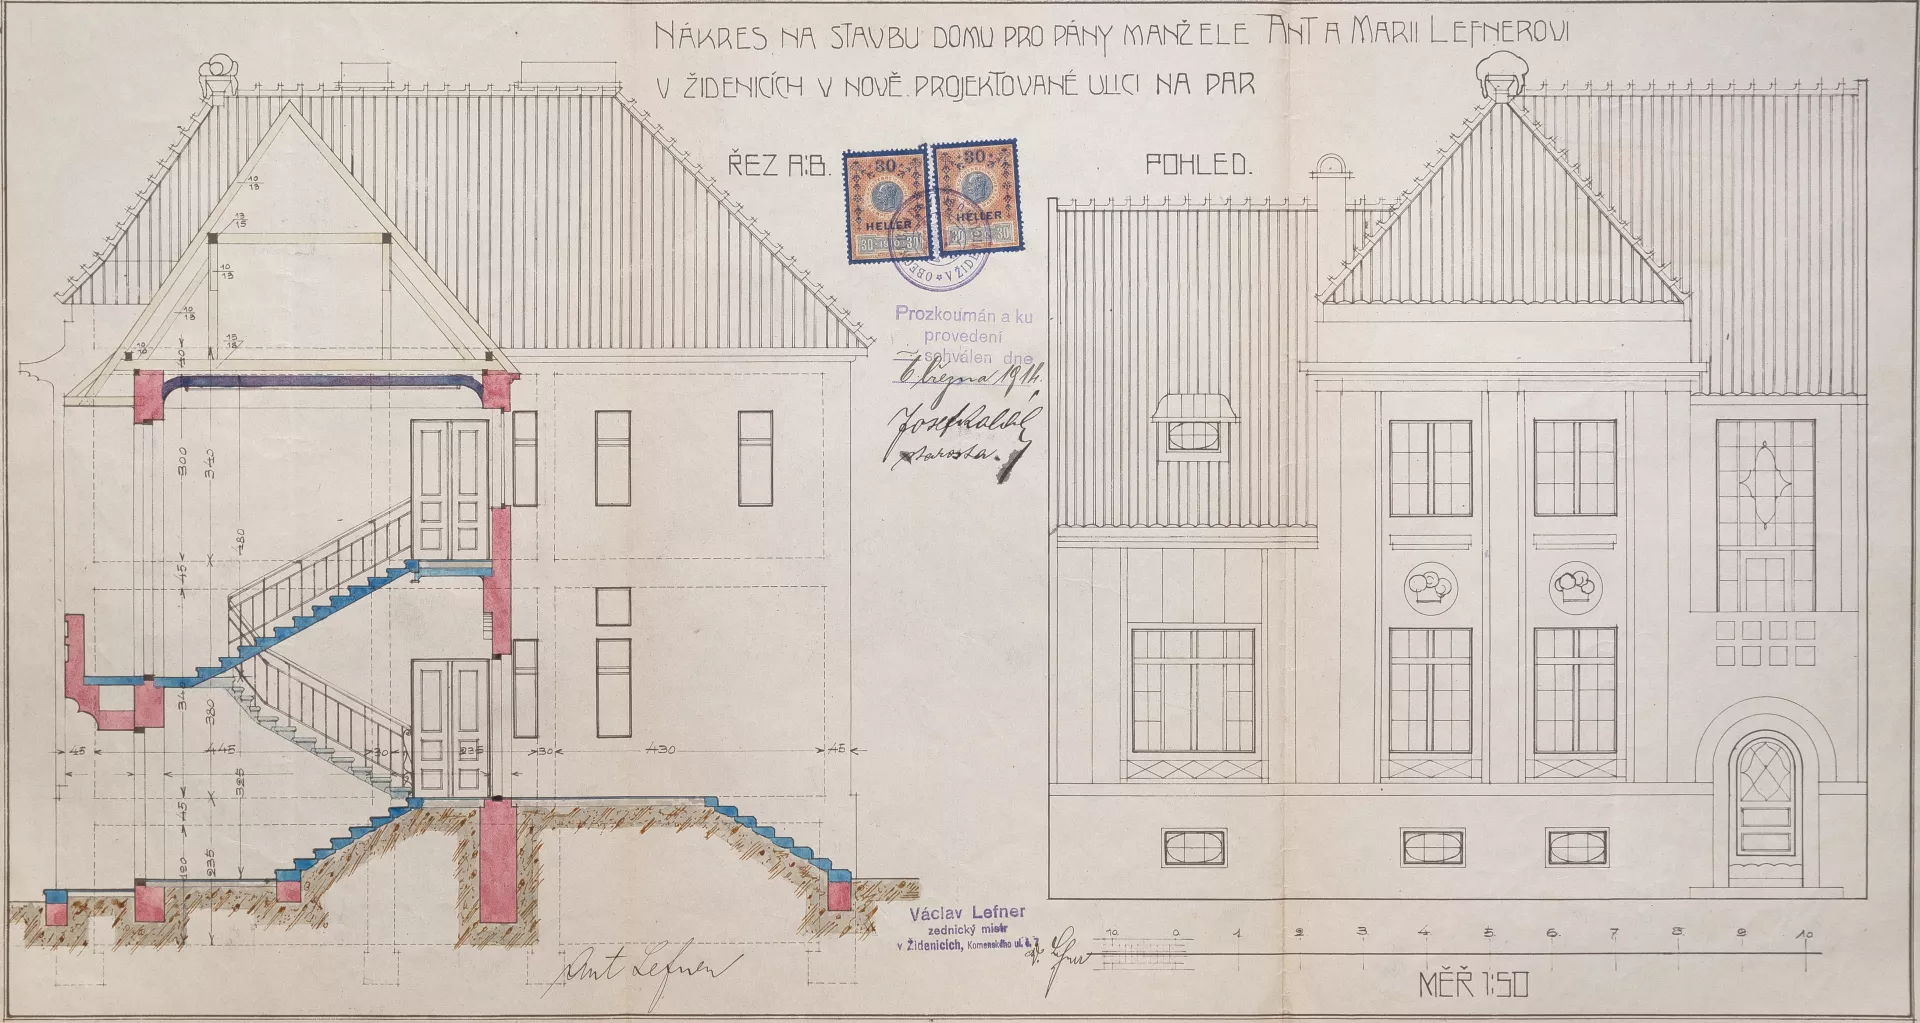 NÁKRES NA STAVBU DOMU PRO PÁNY MANŽELE ANT A MARII LEFNEROVI
V ŽIDENICÍCH V NOVĚ PROJEKTOVANÉ ULICI NA PAR
ŘEZ A:B.
POHLED.
30
HELLER
30 1910 30
30
HELLER
30 30
OBEC V ŽIDE
Prozkoumán a ku
provedení
schválen dne
6 března 1914.
Josef
starosta.
10
13
13
15
10
13
10
13
15
10
10
40
300
340
480
45
340
380
45 445 30 235 30 430 45
325
45
180
235
Václav Lefner
zednický mistr
v Židenicích, Komenského ul. č. 7
Ant Lefner
V. Lefner
10 0 1 2 3 4 5 6 7 8 9 10
MĚŘ 1:50